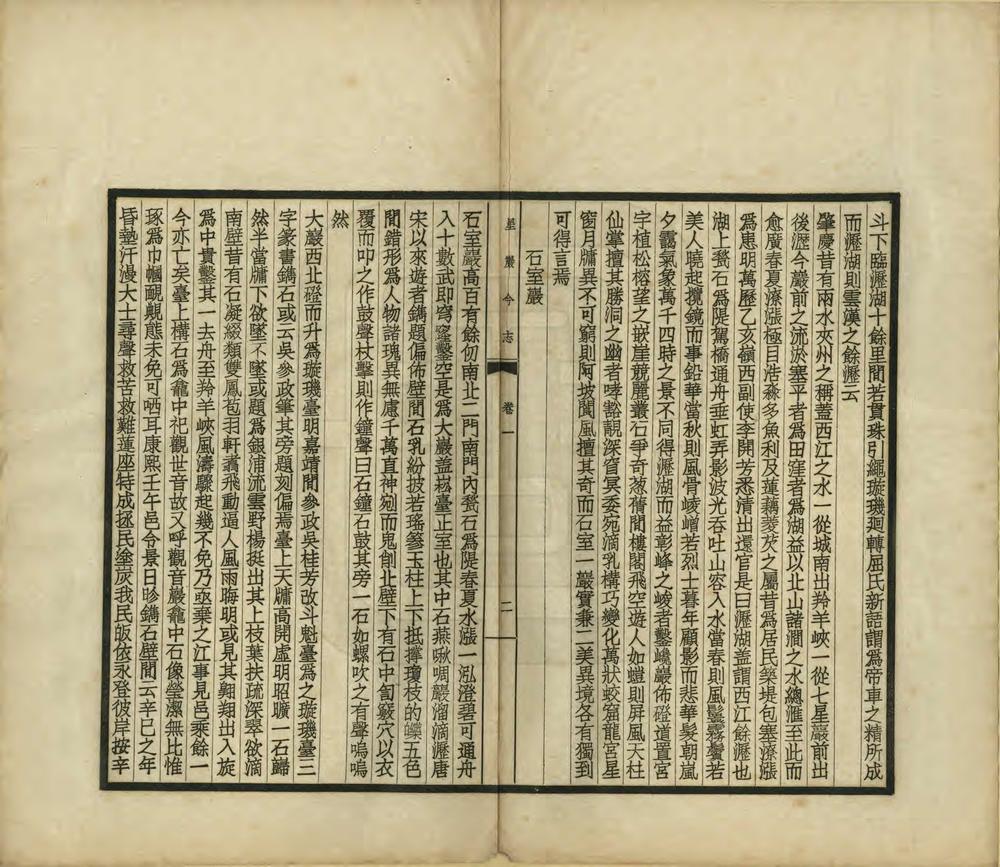 斗下臨瀝湖十餘里間若貫珠引繩璇璣迴轉屈氏新語謂爲帝車之精所成
而瀝湖則雲漢之餘瀝云
肇慶昔有兩水夾州之稱蓋西江之水一從城南出羚羊峽一從七星巖前出
後瀝今巖前之流淤塞平者爲田窪者爲湖益以北山諸澗之水總滙至此而
愈廣春夏潦漲極目浩淼多魚利及蓮藕菱芡之屬昔爲居民築堤包塞潦漲
爲患明萬歷乙亥嶺西副使李開芳悉清出還官是曰瀝湖盖謂西江餘瀝也
湖上甃石爲隄駕橋通舟垂虹弄影波光吞吐山容入水當春則風鬟霧鬢若
美人曉起攬鏡而事鉛華當秋則風骨崚嶒若烈士暮年顧影而悲華髮朝嵐
夕靄氣象萬千四時之景不同得瀝湖而益彰峰之峻者鑿巉巖佈磴道置宮
字植松榕望之嵌崖競麗叢石爭奇葱蒨間樓閣飛空遊人如螘則屏風天柱
仙掌擅其勝洞之幽者哮豁靚深窅冥委宛滴乳構巧變化萬狀蛟窟龍宮星
窗月牖異不可窮則阿坡閬風擅其奇而石室一巖實兼二美異境各有獨到
可得言焉
石室巖
星巖今志
卷一
二
石室巖高百有餘仞南北二門南門內甃石爲隄春夏水漲一泓澄碧可通舟
入十數武即穹窿鑿空是爲大巖盖嶽臺正室也其中石燕啾啁嚴溜滴瀝唐
宋以來遊者鐫題偏佈壁間石乳紛披若瑤簪玉柱上下抵撑瓊枝的皪五色
間錯形爲人物諸瑰異無慮千萬直神剜而鬼削北壁下有石中匌竅穴以衣
覆而叩之作鼓聲杖擊則作鐘聲曰石鐘石鼓其旁一石如螺吹之有聲嗚嗚
然
大巖西北磴而升爲璇璣臺明嘉靖間參政吳桂芳改斗魁臺爲之璇璣臺三
字篆書鐫石或云吳參政筆其旁題刻偏焉臺上天牖高開虛明昭曠一石歸
然半當牖下欲墜不墜或題爲銀浦流雲野楊挺出其上枝葉扶疏深翠欲滴
南壁昔有石凝綴類雙鳳苞羽軒翥飛動逼人風雨晦明或見其翱翔出入旋
爲中貴鑿其一去舟至羚羊峽風濤驟起幾不免乃亟棄之江事見邑乘餘一
今亦亡矣臺上構石爲龕中祀觀世音故又呼觀音巖龕中石像瑩潔無比惟
琢爲巾幗靦覥態未免可哂耳康熙壬午邑令景日昣鐫石壁間云辛巳之年
昏墊汗漫大士尋聲救苦救難蓮座特成拯民塗炭我民皈依永登彼岸按辛